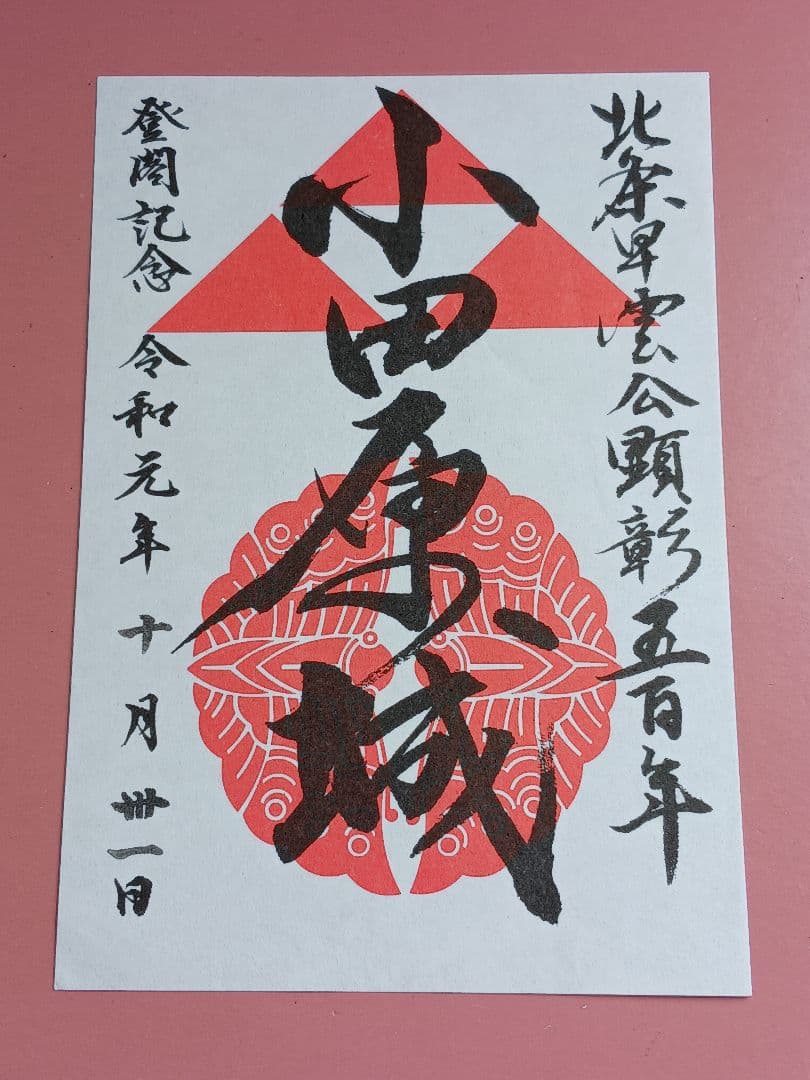 北条早雲公顕彰五百年
小田原城
登閣記念 令和元年 十月 卅一日